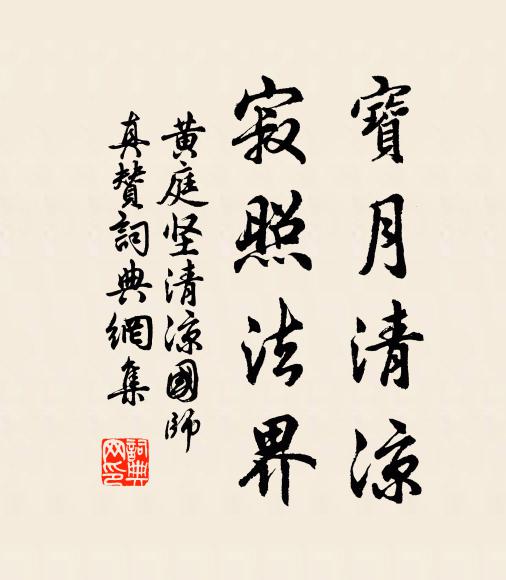 寶月清涼
寂照法界
黄庭坚清涼國師
真贊詞典網集
詞典
网印